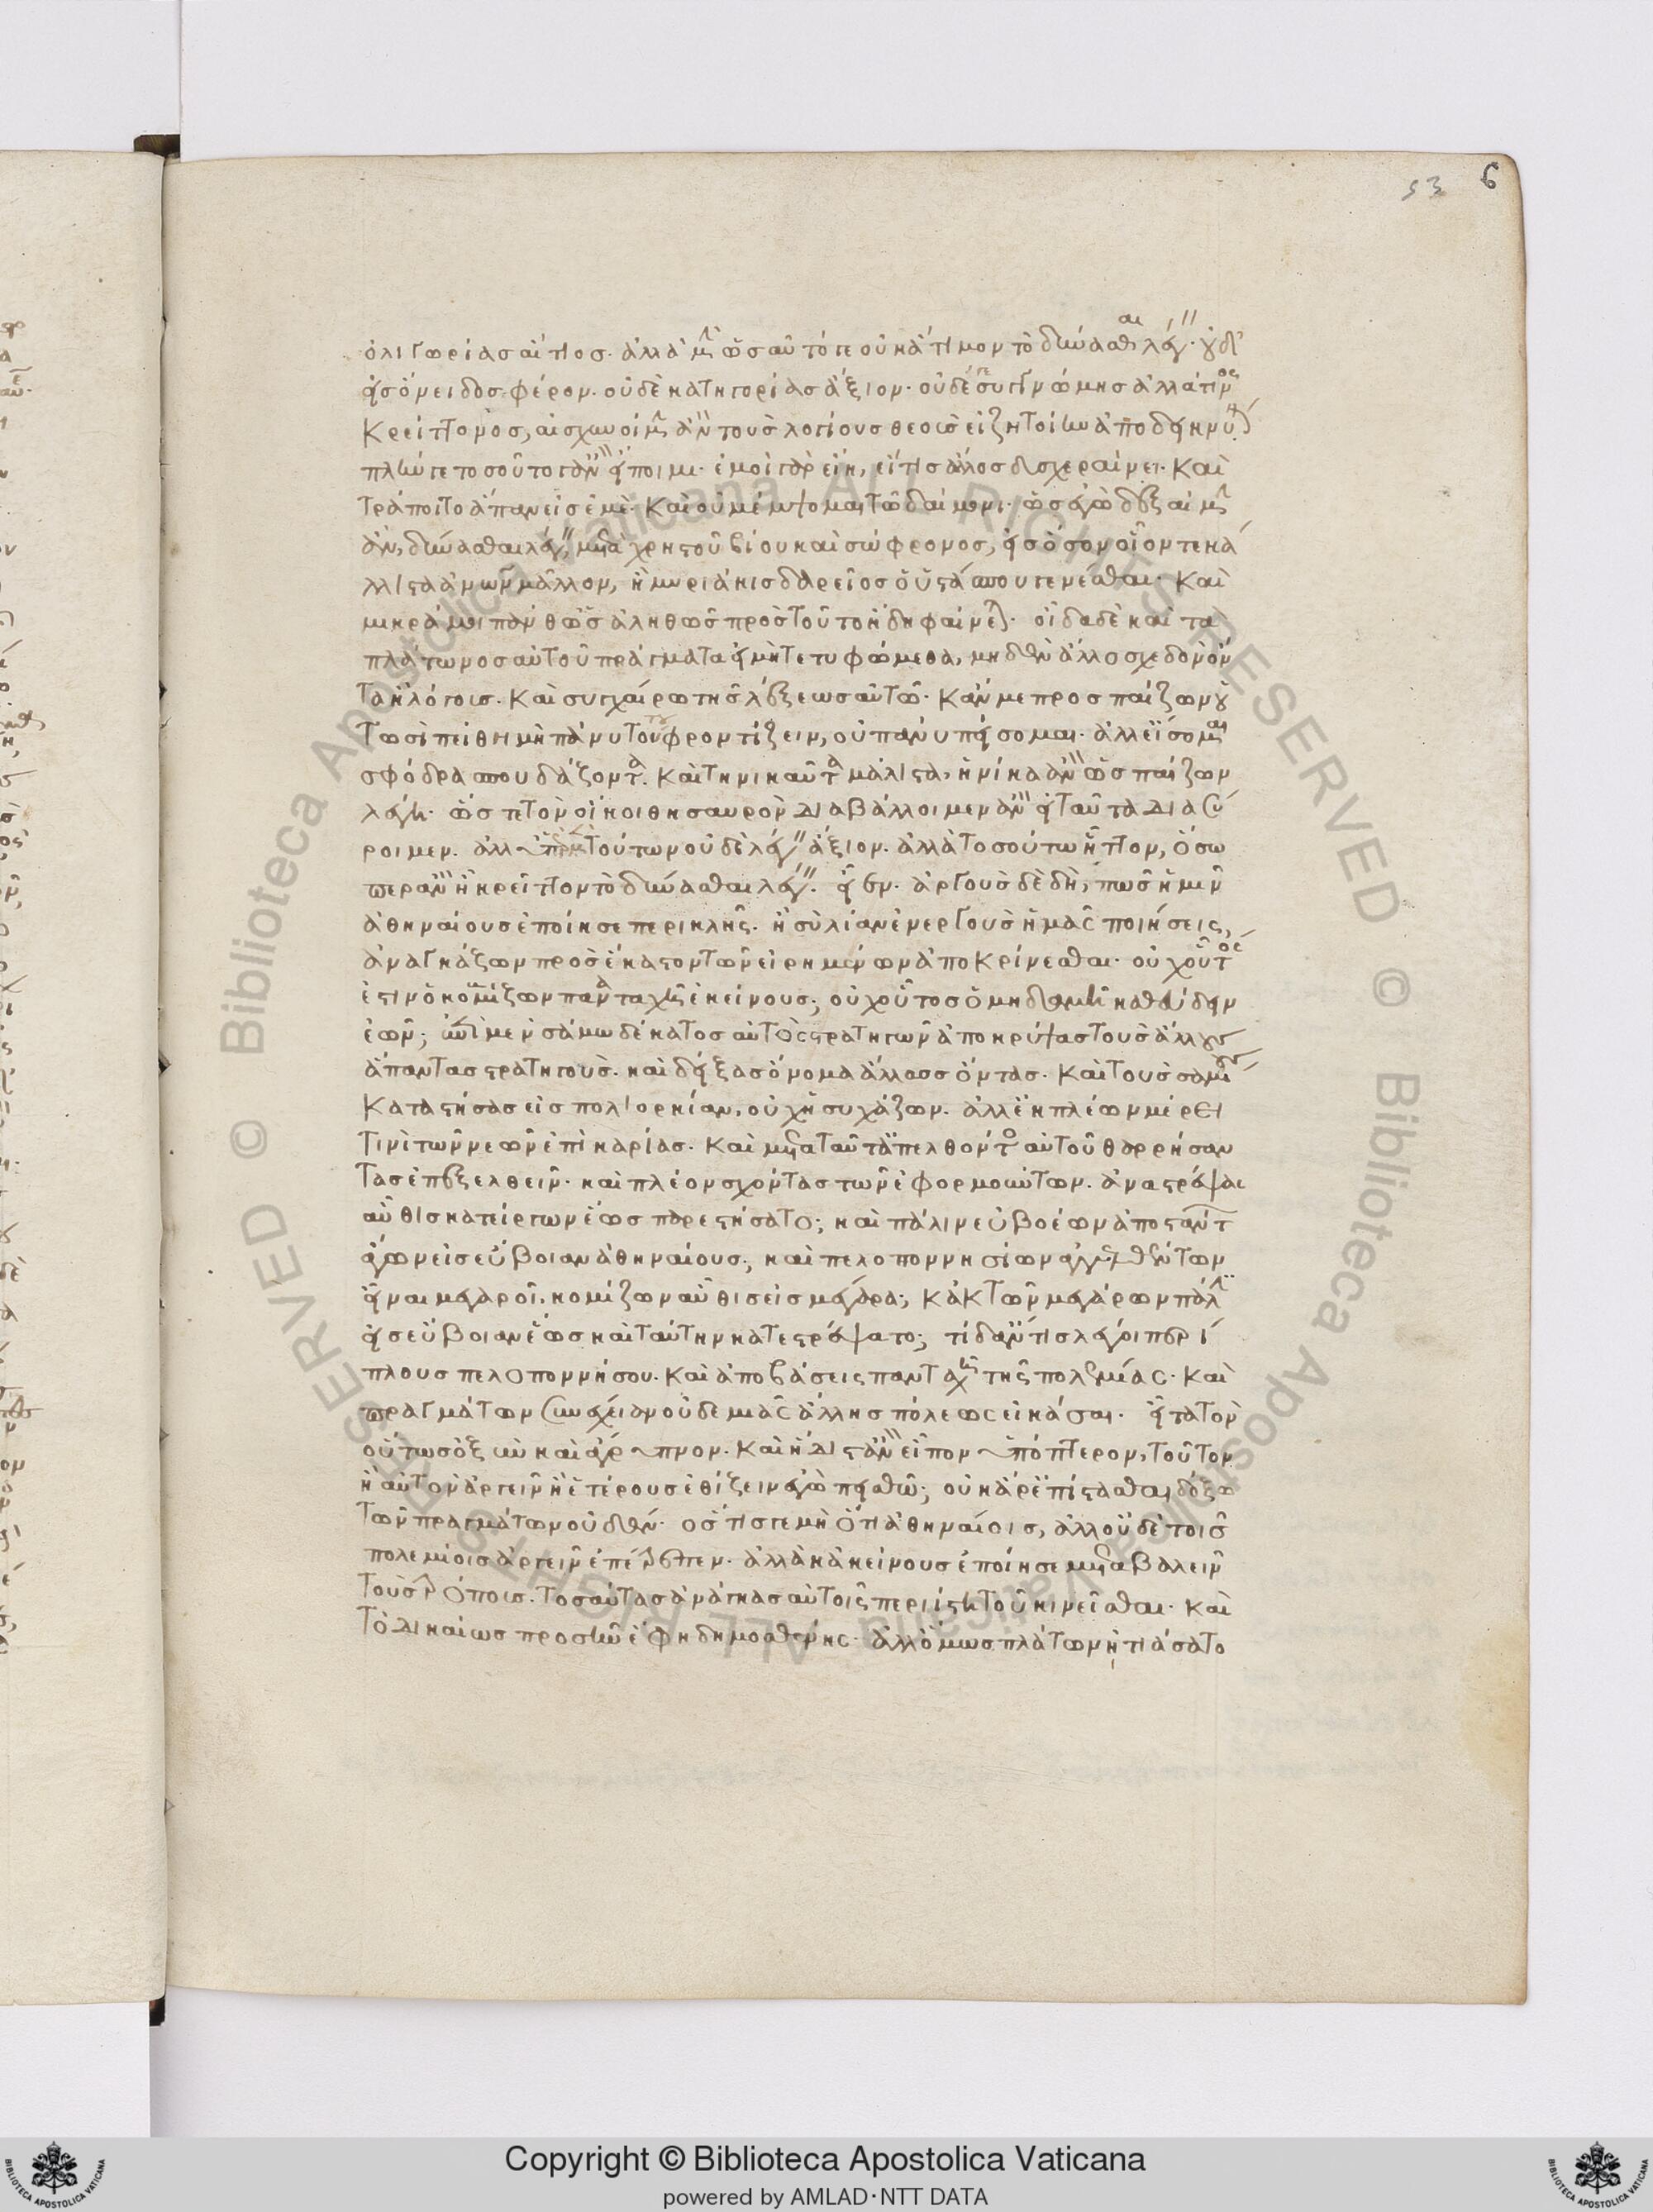 53 6
ὀλιγωρίας αἴτιος. ἀλλὰ μὴν ὥς αὐτό γε οὐκ ἄτιμον τὸ δύνασθαι λέγειν. οὐδ'
εἰς ὄνειδος φέρον. οὐδὲ κατηγορίας ἄξιον. οὐδέ γε συγγνώμης ἀλλά τινος
κρείττονος, αἰσχυνοίμην ἂν τοὺς λογίους θεοὺς εἰ ζητοίην ἀποδεικνύναι
πλὴν γε τοσοῦτο γ' ἂν εἴποιμι. ἐμοὶ γὰρ εἴη, εἴ τις ἄλλος δυσχεραίνει. καὶ
τράποιτο ἅπαν εἰς ἐμέ. καὶ οὐ μέμψομαι τῷ δαίμονι. ὡς ἐγὼ δεξαίμην
ἂν, δύνασθαι λέγειν, μετὰ χρηστοῦ βίου καὶ σώφρονος, εἰς ὅσον οἷόν τε κά
λλιστα ἀνδρῶν μᾶλλον, ἢ μυριάκις δαρεῖος ὁ ὑστάσπου γενέσθαι. καὶ
μικρά μοι πάνθ' ὡς ἀληθῶς πρὸς τοῦτο ἤδη φαίνεται. οἶδα δὲ καὶ τὰ
πλάτωνος αὐτοῦ πράγματα εἰ μή τε τυφώμεθα, μηδὲν ἄλλο σχεδὸν ὄν
τα ἢ λόγοις. καὶ συγχαίρω τῆς λέξεως αὐτῷ. κἄν με προσπαίζων οὑ
τωσὶ πείθῃ μὴ πάνυ τούτου φροντίζειν, οὐ πάνυ πείσομαι. ἀλλ' εἴσομαι
σφόδρα σπουδάζοντα. καὶ τηνικαῦτα μάλιστα, ἡνίκα ἂν ὡς παίζων
λέγῃ. ὥς γε τὸν οἴκοι θησαυρὸν διαβάλλοιμεν ἂν εἰ ταῦτα διασύ
ροιμεν. ἀλλ' ὑπὲρ μὲν τούτων οὐδὲν λέγειν ἄξιον. ἀλλὰ τοσούτῳ ἧττον, ὅσῳ
περ ἂν ἦ κρεῖττον τὸ δύνασθαι λέγειν. εἶεν. ἀργοὺς δὲ δὴ, πῶς ἡμῖν
ἀθηναίους ἐποίησε περικλῆς. ἢ σὺ λίαν ἐνεργοὺς ἡμᾶς ποιήσεις,
ἀναγκάζων πρὸς ἕκαστον τῶν εἰρημένων ἀποκρίνεσθαι. οὐχ οὗτός
ἐστιν ὁ κομίζων πανταχῆ ἐκείνους; οὐχ οὗτος ὁ μηδαμῆ καθεύδειν
ἐῶν; ὃς ἐπὶ μὲν σάμῳ δέκατος αὐτὸς στρατηγῶν ἀποκρύψας τοὺς ἄλλους
ἅπαντας στρατηγούς. καὶ δείξας ὄνομα ἄλλως ὄντας. καὶ τοὺς σαμίους
καταστήσας εἰς πολιορκίαν, οὐχ ἡσυχάζων. ἀλλ' ἐκπλέων μέρει
τινὶ τῶν νεῶν ἐπὶ καρίας. καὶ μετὰ ταῦτα ἀπελθόντος αὐτοῦ θαρρήσαν
τας ἐπεξελθεῖν. καὶ πλέον σχόντας τῶν ἐφορμούντων. ἀναστρέψας
αὖθις κατείργων ἕως παρεστήσατο; καὶ πάλιν εὐβοέων ἀποστάντων
ἄγων εἰς εὔβοιαν ἀθηναίους; καὶ πελοποννησίων ἀγγελθέντων
εἶναι μεγαροῖ. κομίζων αὖθις εἰς μέγαρα; κἀκ τῶν μεγάρων πάλιν
εἰς εὔβοιαν ἕως καὶ ταύτην κατεστρέψατο; τί δ' ἄν τις λέγοι περί
πλους πελοποννήσου. καὶ ἀποβάσεις πανταχῆ τῆς πολεμίας. καὶ
πραγμάτων συνέχειαν οὐδεμιᾶς ἄλλης πόλεως εἰκάσαι. εἶτα τὸν
οὕτως ὀξὺν καὶ ἄγρυπνον. καὶ ἤδη τις ἂν εἶπον ὑπόπτερον, τοῦτον
ἢ αὐτὸν ἀργεῖν ἢ ἑτέρους ἐθίζειν ἐγὼ πεισθῶ; οὐκ ἄρ' ἐπίστασθαι δόξω
τῶν πραγμάτων οὐδέν. ὅς τίς γε μὴ ὅτι ἀθηναίοις, ἀλλ' οὐδὲ τοῖς
πολεμίοις ἀργεῖν ἐπέτρεπεν. ἀλλὰ κἀκείνους ἐποίησε μεταβαλεῖν
τοὺς τρόπους. τοσαύτας ἀνάγκας αὐτοῖς περιίστη τοῦ κινεῖσθαι. καὶ
τὸ δικαίως προσῆν ἔφη δημοσθένης. ἀλλ' ὅμως πλάτων ᾐτιάσατο
Copyright © Biblioteca Apostolica Vaticana
powered by AMLAD·NTT DATA